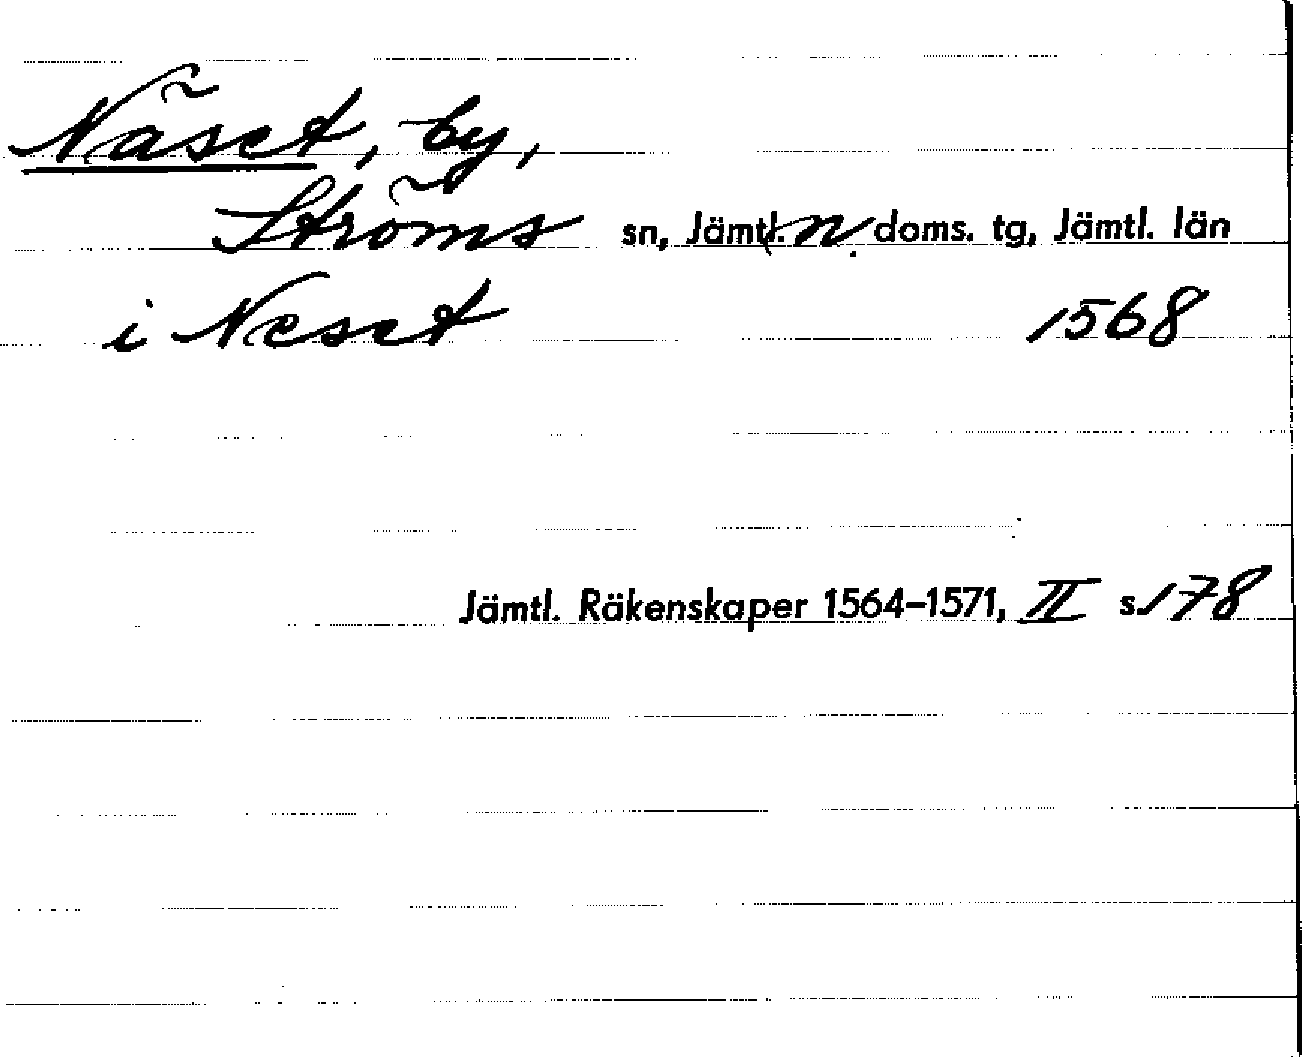 Näset, by,
Ströms sn, Jämtl. n. doms. tg, Jämtl. län
i Neset 1568
Jämtl. Räkenskaper 1564-1571, II s. 178